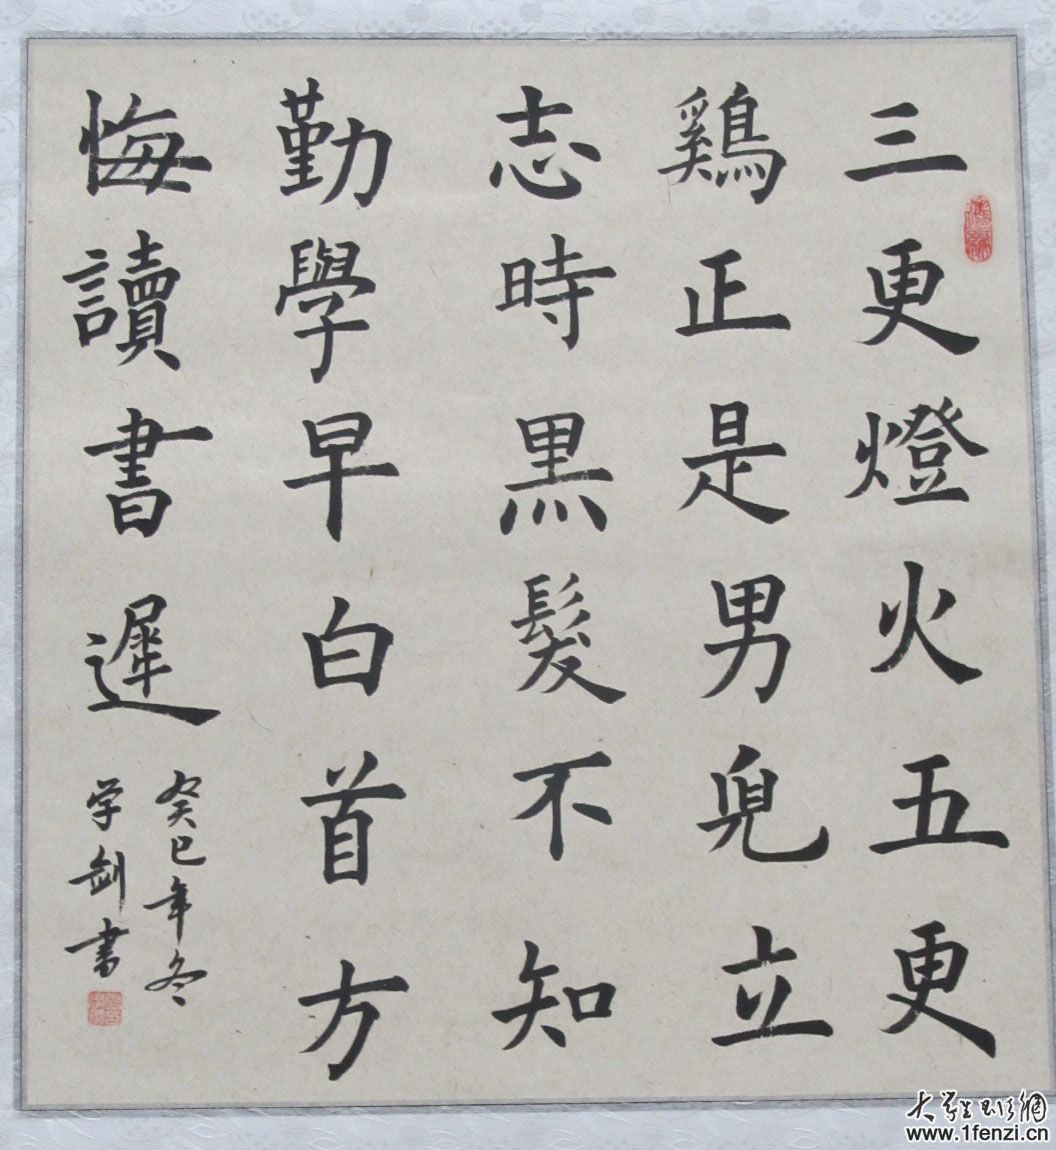 三更燈火五更
鷄正是男兒立
志時黒髮不知
勤學早白首方
悔讀書遲
癸巳年冬
学劍書
大学生
www.1fenzi.cn